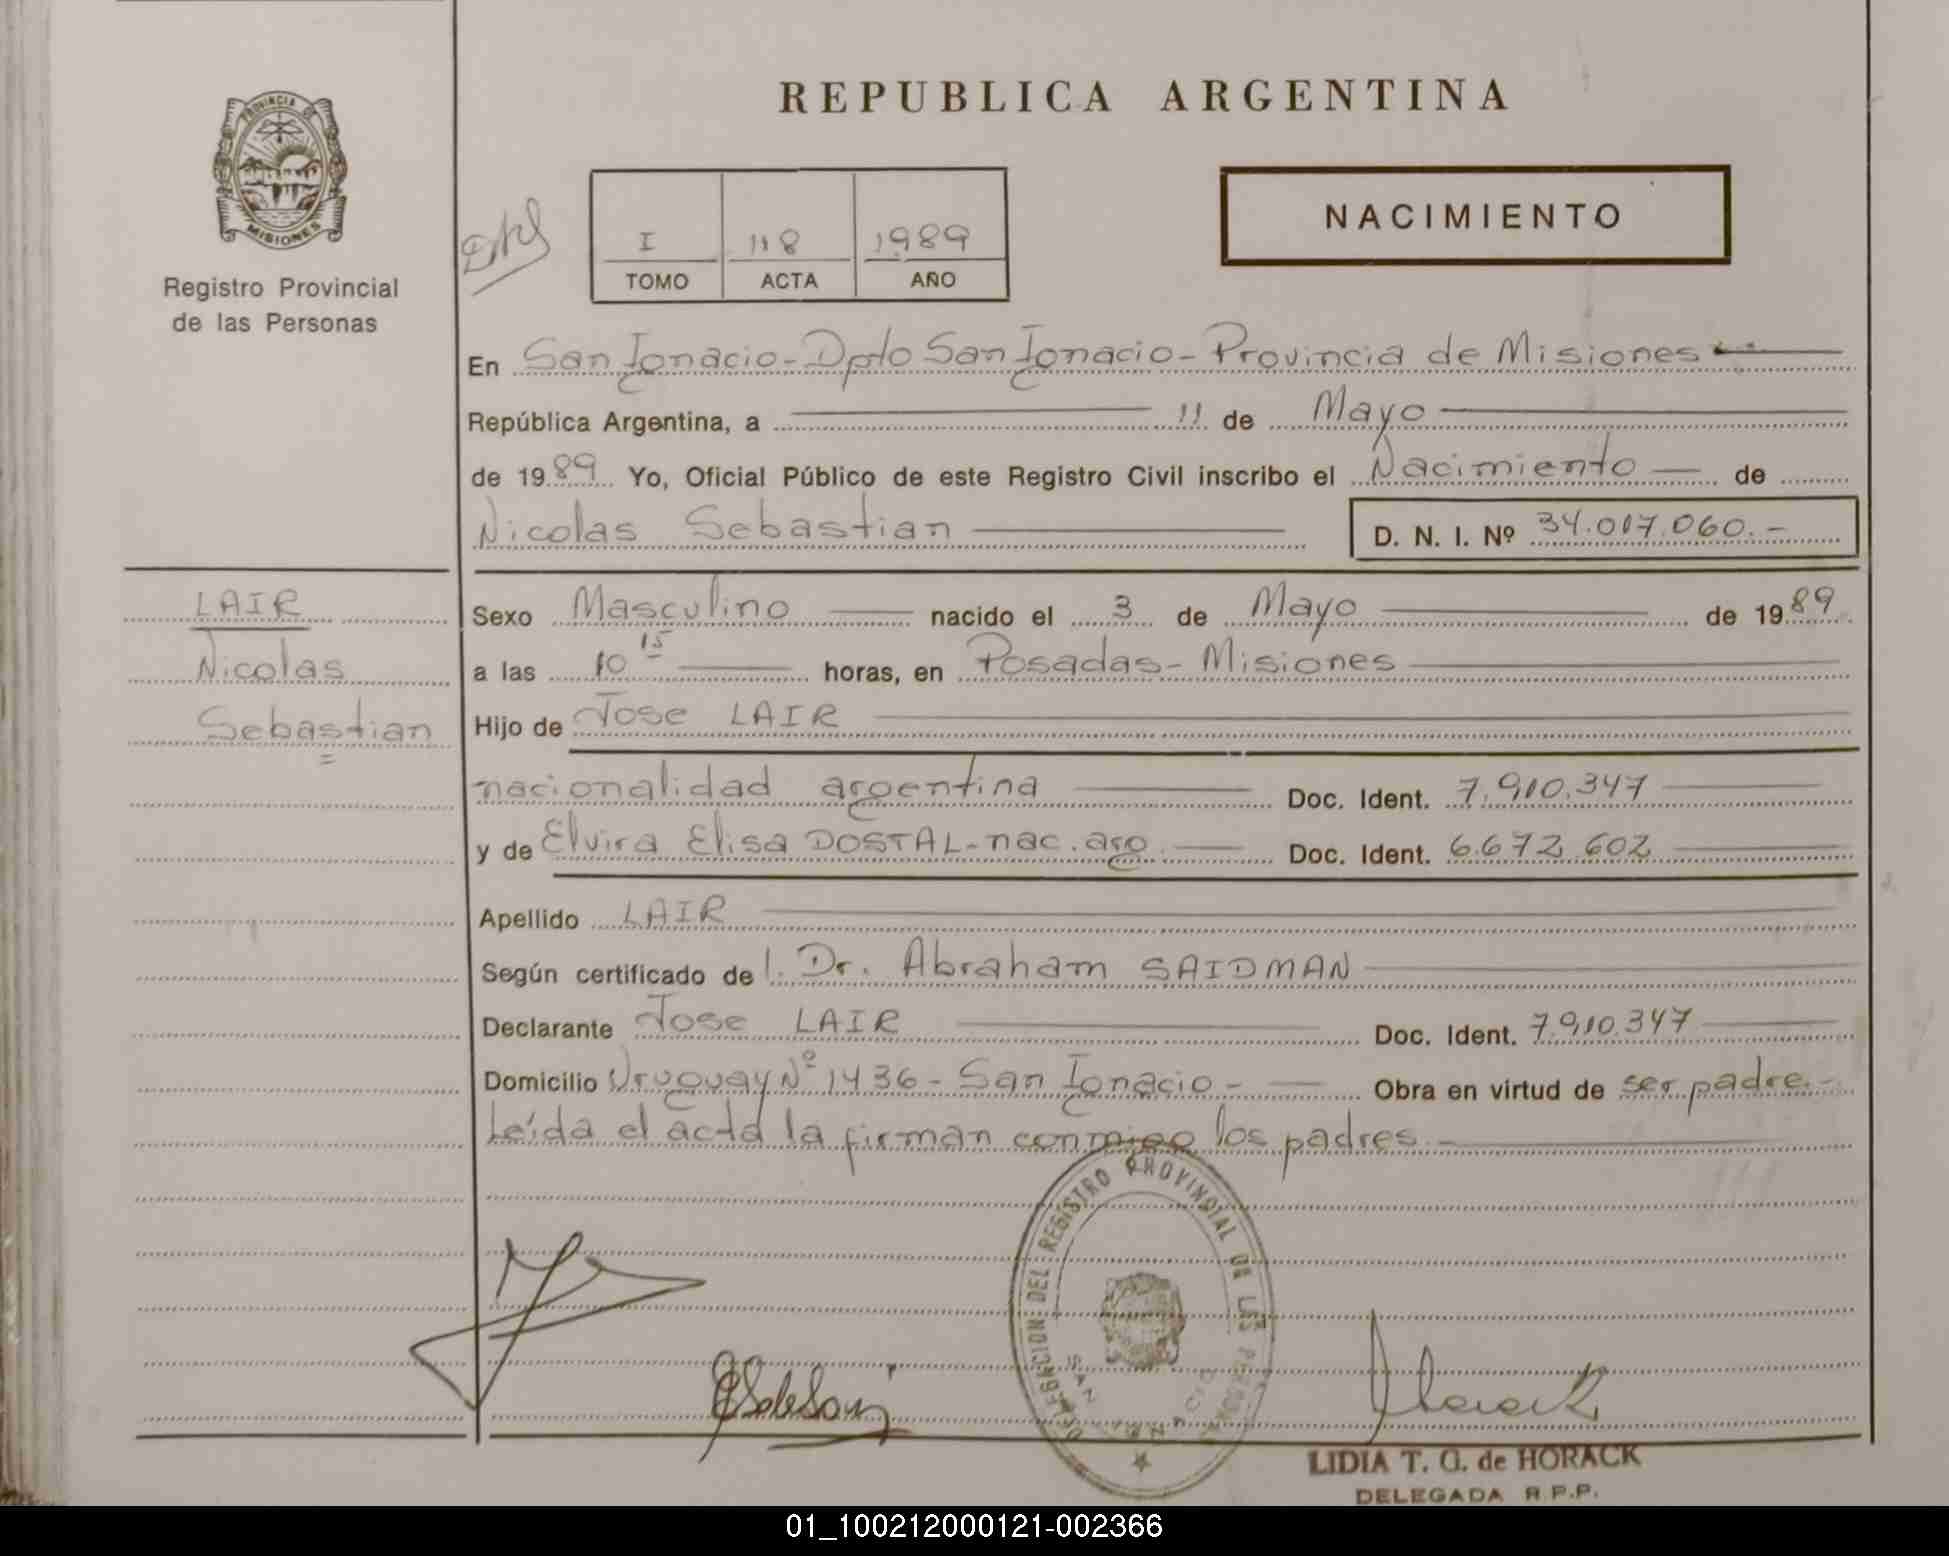 REPUBLICA ARGENTINA
PROVINCIA DE
MISIONES
Registro Provincial
de las Personas
I 118 1989
TOMO ACTA AÑO
NACIMIENTO
En San Ignacio - Dpto San Ignacio - Provincia de Misiones
República Argentina, a 11 de Mayo
de 1989 Yo, Oficial Público de este Registro Civil inscribo el Nacimiento de
Nicolas Sebastian D. N. I. Nº 34.017.060.-
LAIR
Nicolas
Sebastian
Sexo Masculino nacido el 3 de Mayo de 1989
a las 10 15 horas, en Posadas - Misiones
Hijo de Jose LAIR
nacionalidad argentina Doc. Ident. 7.910.347
y de Elvira Elisa DOSTAL - nac. arg. Doc. Ident. 6.672.602
Apellido LAIR
Según certificado de l. Dr. Abraham SAIDMAN
Declarante Jose LAIR Doc. Ident. 7.910.347
Domicilio Uruguay Nº 1436 - San Ignacio - Obra en virtud de ser padre.-
Leída el acta la firman conmigo los padres.
DELEGACION DEL REGISTRO PROVINCIAL DE LAS PERSONAS
SAN IGNACIO
LIDIA T. G. de HORACK
DELEGADA R.P.P.
01_100212000121-002366